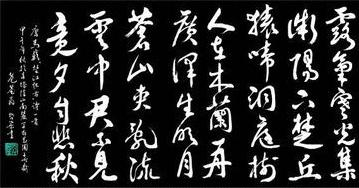 露氣寒光集
微陽下楚丘
猿啼洞庭樹
人在木蘭舟
廣澤生明月
蒼山夾亂流
雲中君不見
竟夕自悲秋
唐馬戴楚江懷古詩一首